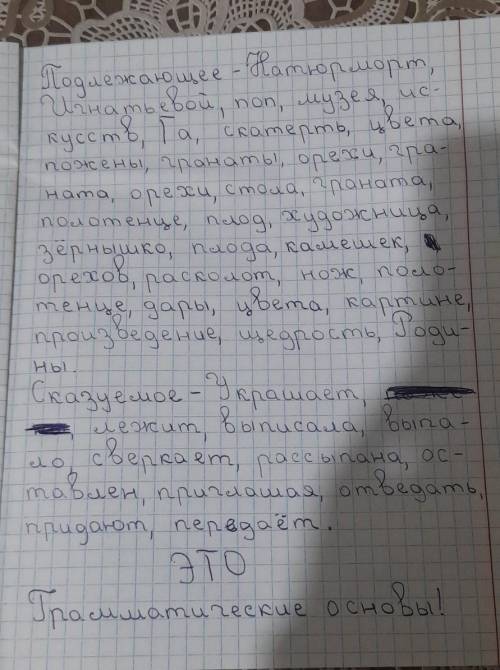 Подлежающее - Натюрморт,
Игнатьевой, поп, музея, ис-
кусств, Га, скатерть, цвета,
пожены, гранаты, орехи, гра-
ната, орехи, стола, граната,
полотенце, плод, художница,
зёрнышко, плода, камешек,
орехов, расколот, нож, поло-
тенце, дары, цвета, картине,
произведение, щедрость, Роди-
ны.
Сказуемое - Украшает,
лежит, выписала, выпа-
ло, сверкает, рассыпана, ос-
тавлен, приглашая, отведать,
придают, передаёт.
ЭТО
Грамматические основы!